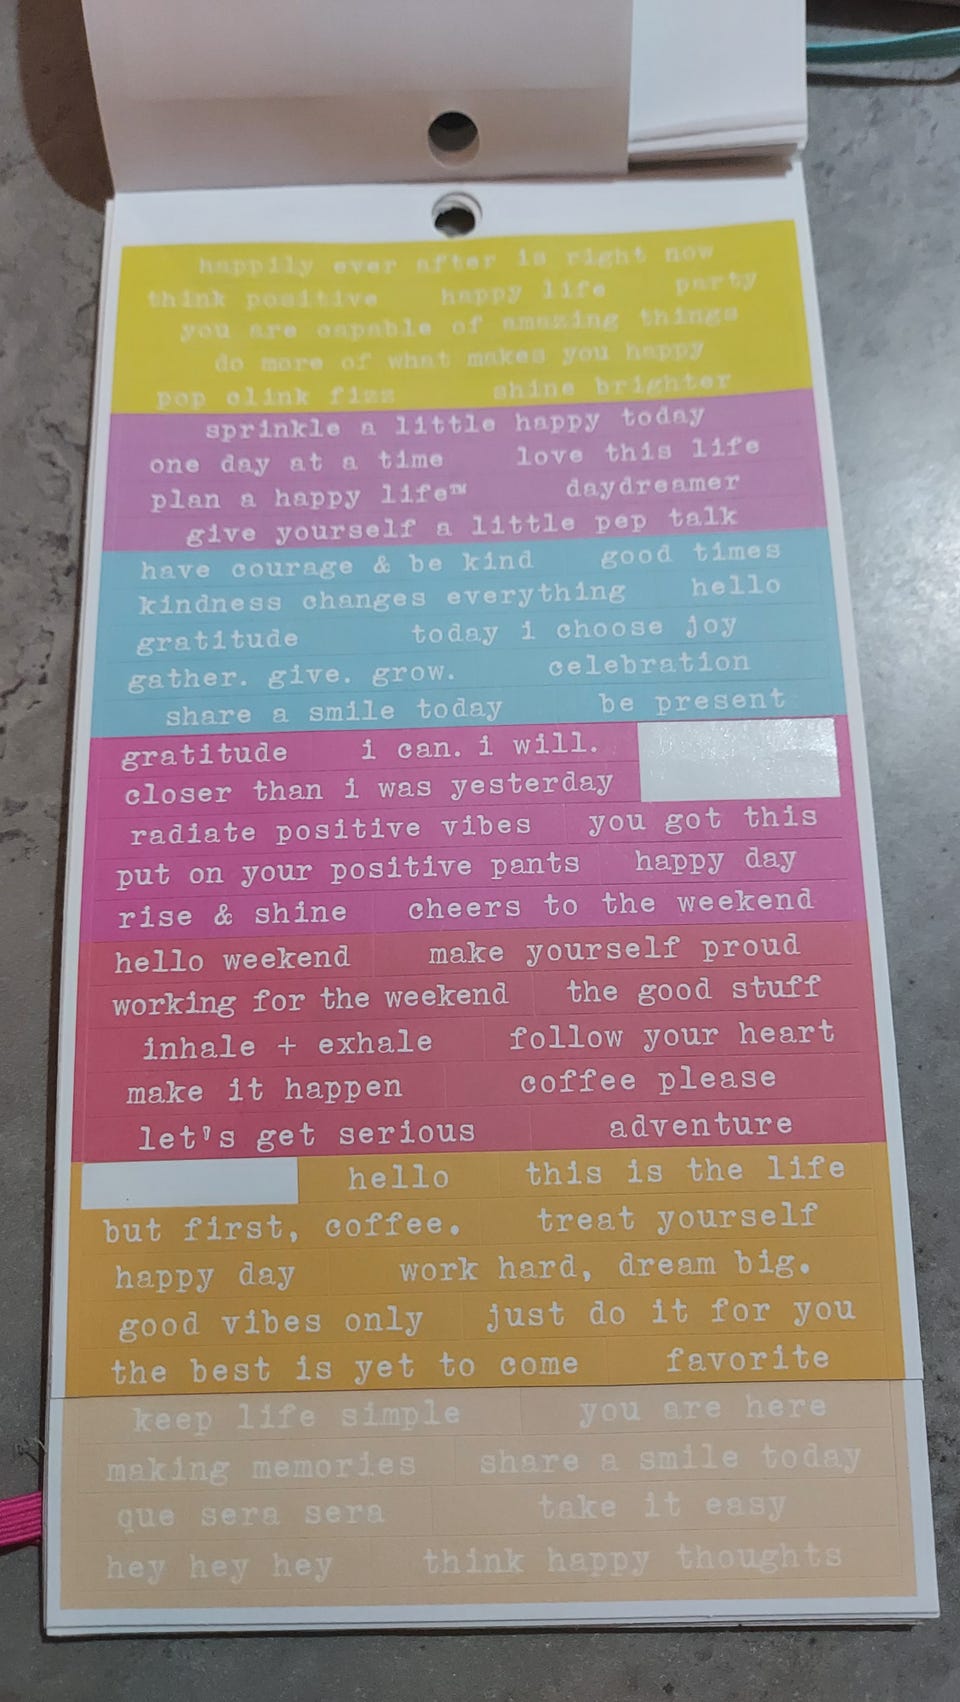 happily ever after is right now
think positive happy life party
you are capable of amazing things
do more of what makes you happy
pop clink fizz shine brighter
sprinkle a little happy today
one day at a time love this life
plan a happy life™ daydreamer
give yourself a little pep talk
have courage & be kind good times
kindness changes everything hello
gratitude today i choose joy
gather. give. grow. celebration
share a smile today be present
gratitude i can. i will.
closer than i was yesterday
radiate positive vibes you got this
put on your positive pants happy day
rise & shine cheers to the weekend
hello weekend make yourself proud
working for the weekend the good stuff
inhale + exhale follow your heart
make it happen coffee please
let's get serious adventure
hello this is the life
but first, coffee. treat yourself
happy day work hard, dream big.
good vibes only just do it for you
the best is yet to come favorite
keep life simple you are here
making memories share a smile today
que sera sera take it easy
hey hey hey think happy thoughts